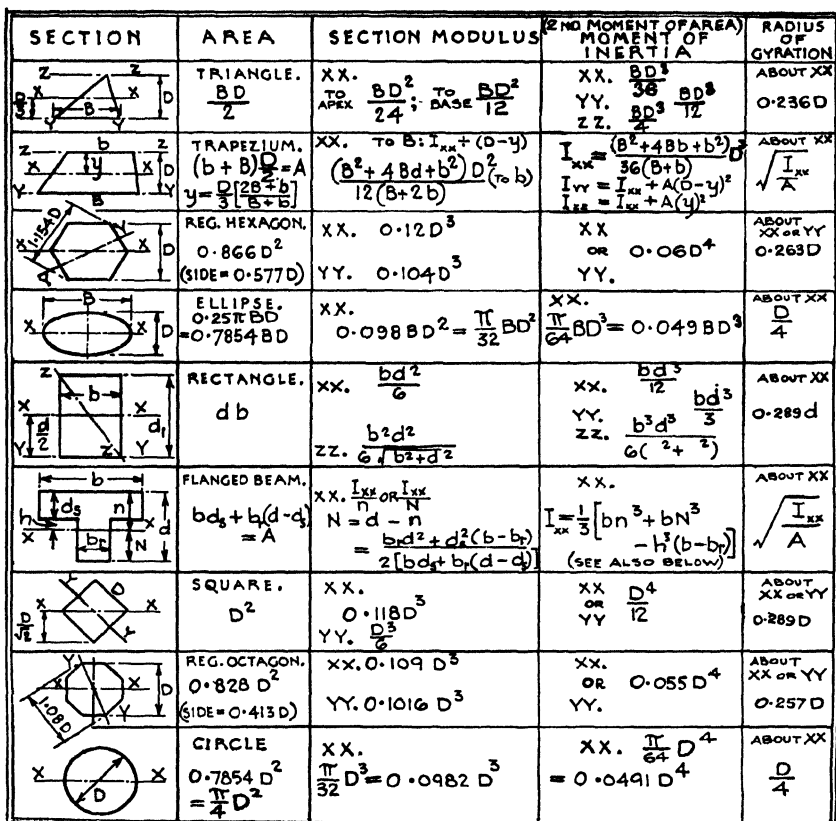 SECTION AREA SECTION MODULUS (2ND MOMENT OF AREA) MOMENT OF INERTIA RADIUS OF GYRATION
Z Z X X D D/3 B Y Y
TRIANGLE.
BD/2
XX.
TO APEX BD²/24; TO BASE BD²/12
XX. BD³/36
YY. BD³/12
ZZ. BD³/4
ABOUT XX
0.236D
Z b Z X X y D Y B Y
TRAPEZIUM.
(b+B)D/2=A
y=D/3[2B+b/B+b]
XX. TO B: Ixx ÷ (D-y)
(B²+4Bd+b²)D²/12(B+2b) (TO b)
Ixx = (B²+4Bb+b²)D³/36(B+b)
IYY = Ixx + A(D-y)²
Izz = Ixx + A(y)²
ABOUT XX
√Ixx/A
1.154D X X Y Y D
REG. HEXAGON.
0.866D²
(SIDE=0.577D)
XX. 0.12D³
YY. 0.104D³
XX
OR 0.06D⁴
YY.
ABOUT
XX OR YY
0.263D
B X X D
ELLIPSE.
0.25πBD
=0.7854BD
XX.
0.098BD² = π/32 BD²
XX.
π/64 BD³ = 0.049BD³
ABOUT XX
D/4
Z b X X d/2 d, Y Z Y
RECTANGLE.
db
XX. bd²/6
ZZ. b²d²/6√b²+d²
XX. bd³/12
YY. bd³/3
ZZ. b³d³/6( ²+ ²)
ABOUT XX
0.289d
b ds n h X X d br N
FLANGED BEAM.
bds+br(d-ds)
=A
XX. Ixx/n OR Ixx/N
N = d - n
= brd²+ds²(b-br)/2[bds+br(d-ds)]
XX.
Ixx=1/3[bn³+bN³
-h³(b-br)]
(SEE ALSO BELOW)
ABOUT XX
√Ixx/A
Y D X X D/√2 Y
SQUARE.
D²
XX.
0.118D³
YY. D³/6
XX
OR D⁴/12
YY
ABOUT
XX OR YY
0.289D
Y X X D 1.08D Y
REG. OCTAGON.
0.828D²
(SIDE=0.413D)
XX. 0.109 D³
YY. 0.1016 D³
XX.
OR 0.055D⁴
YY.
ABOUT
XX OR YY
0.257D
X X D
CIRCLE
0.7854 D²
= π/4 D²
XX.
π/32 D³ = 0.0982 D³
XX. π/64 D⁴
= 0.0491 D⁴
ABOUT XX
D/4